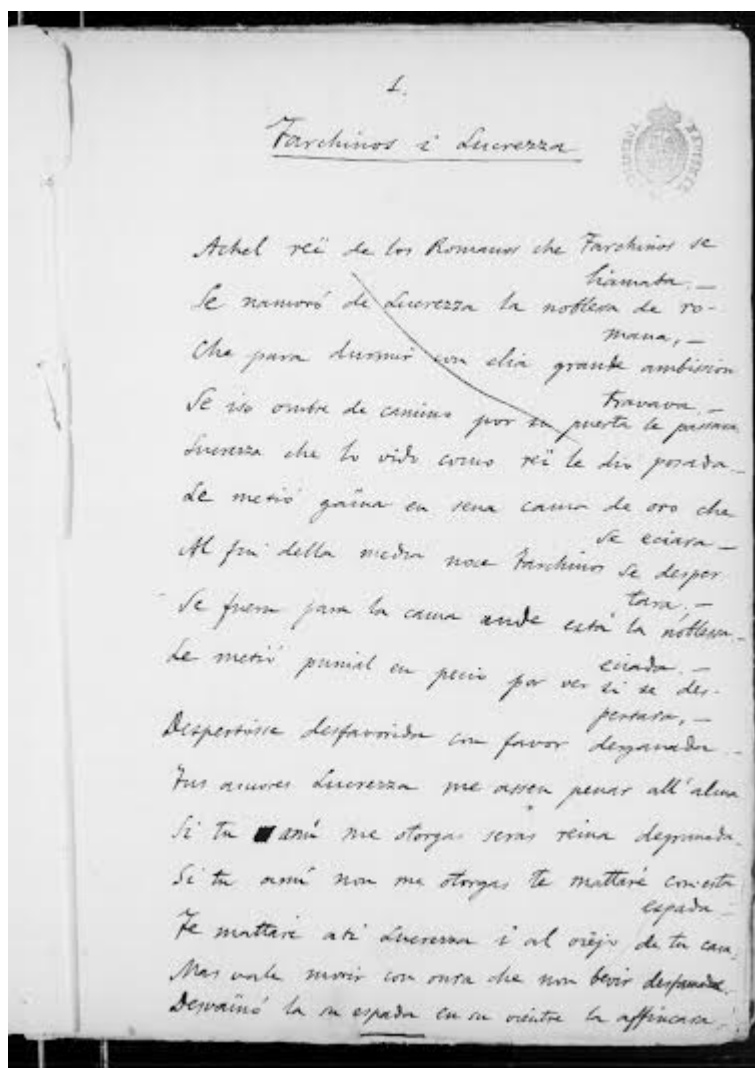 1.
Tarchinos i Lucrezza
Achel reï de los Romanos che Tarchinos se
liamaba. —
Se namoró de Lucrezza la noblesa de ro-
mana, —
Che para durmir con elia grande ambission
travava. —
Se iso ombre de camino por su puerta le passara
Lucrezza che lo vido como reï le dió posada. —
Le metió gaïna en sena cama de oro che
se eciara —
Al fin della media noce Tarchinos se desper
tara. —
Se fuera para la cama ande está la noblessa
eciada. —
Le metió punial en pecio por ver si se des-
pertara, —
Despertósse desfavorida con favor desganada. —
Tus amores Lucrezza me assen penar all'alma
Si tu amí me otorgas seras reina degranada.
Si tu amí non me otorgas te mattaré con esta
espada —
Te mattaré ati Lucrezza i al de tu casa,
Mas vale morir con onra che non bevir desfamada. —
Desvaïnó la su espada en su vientre la affincara.